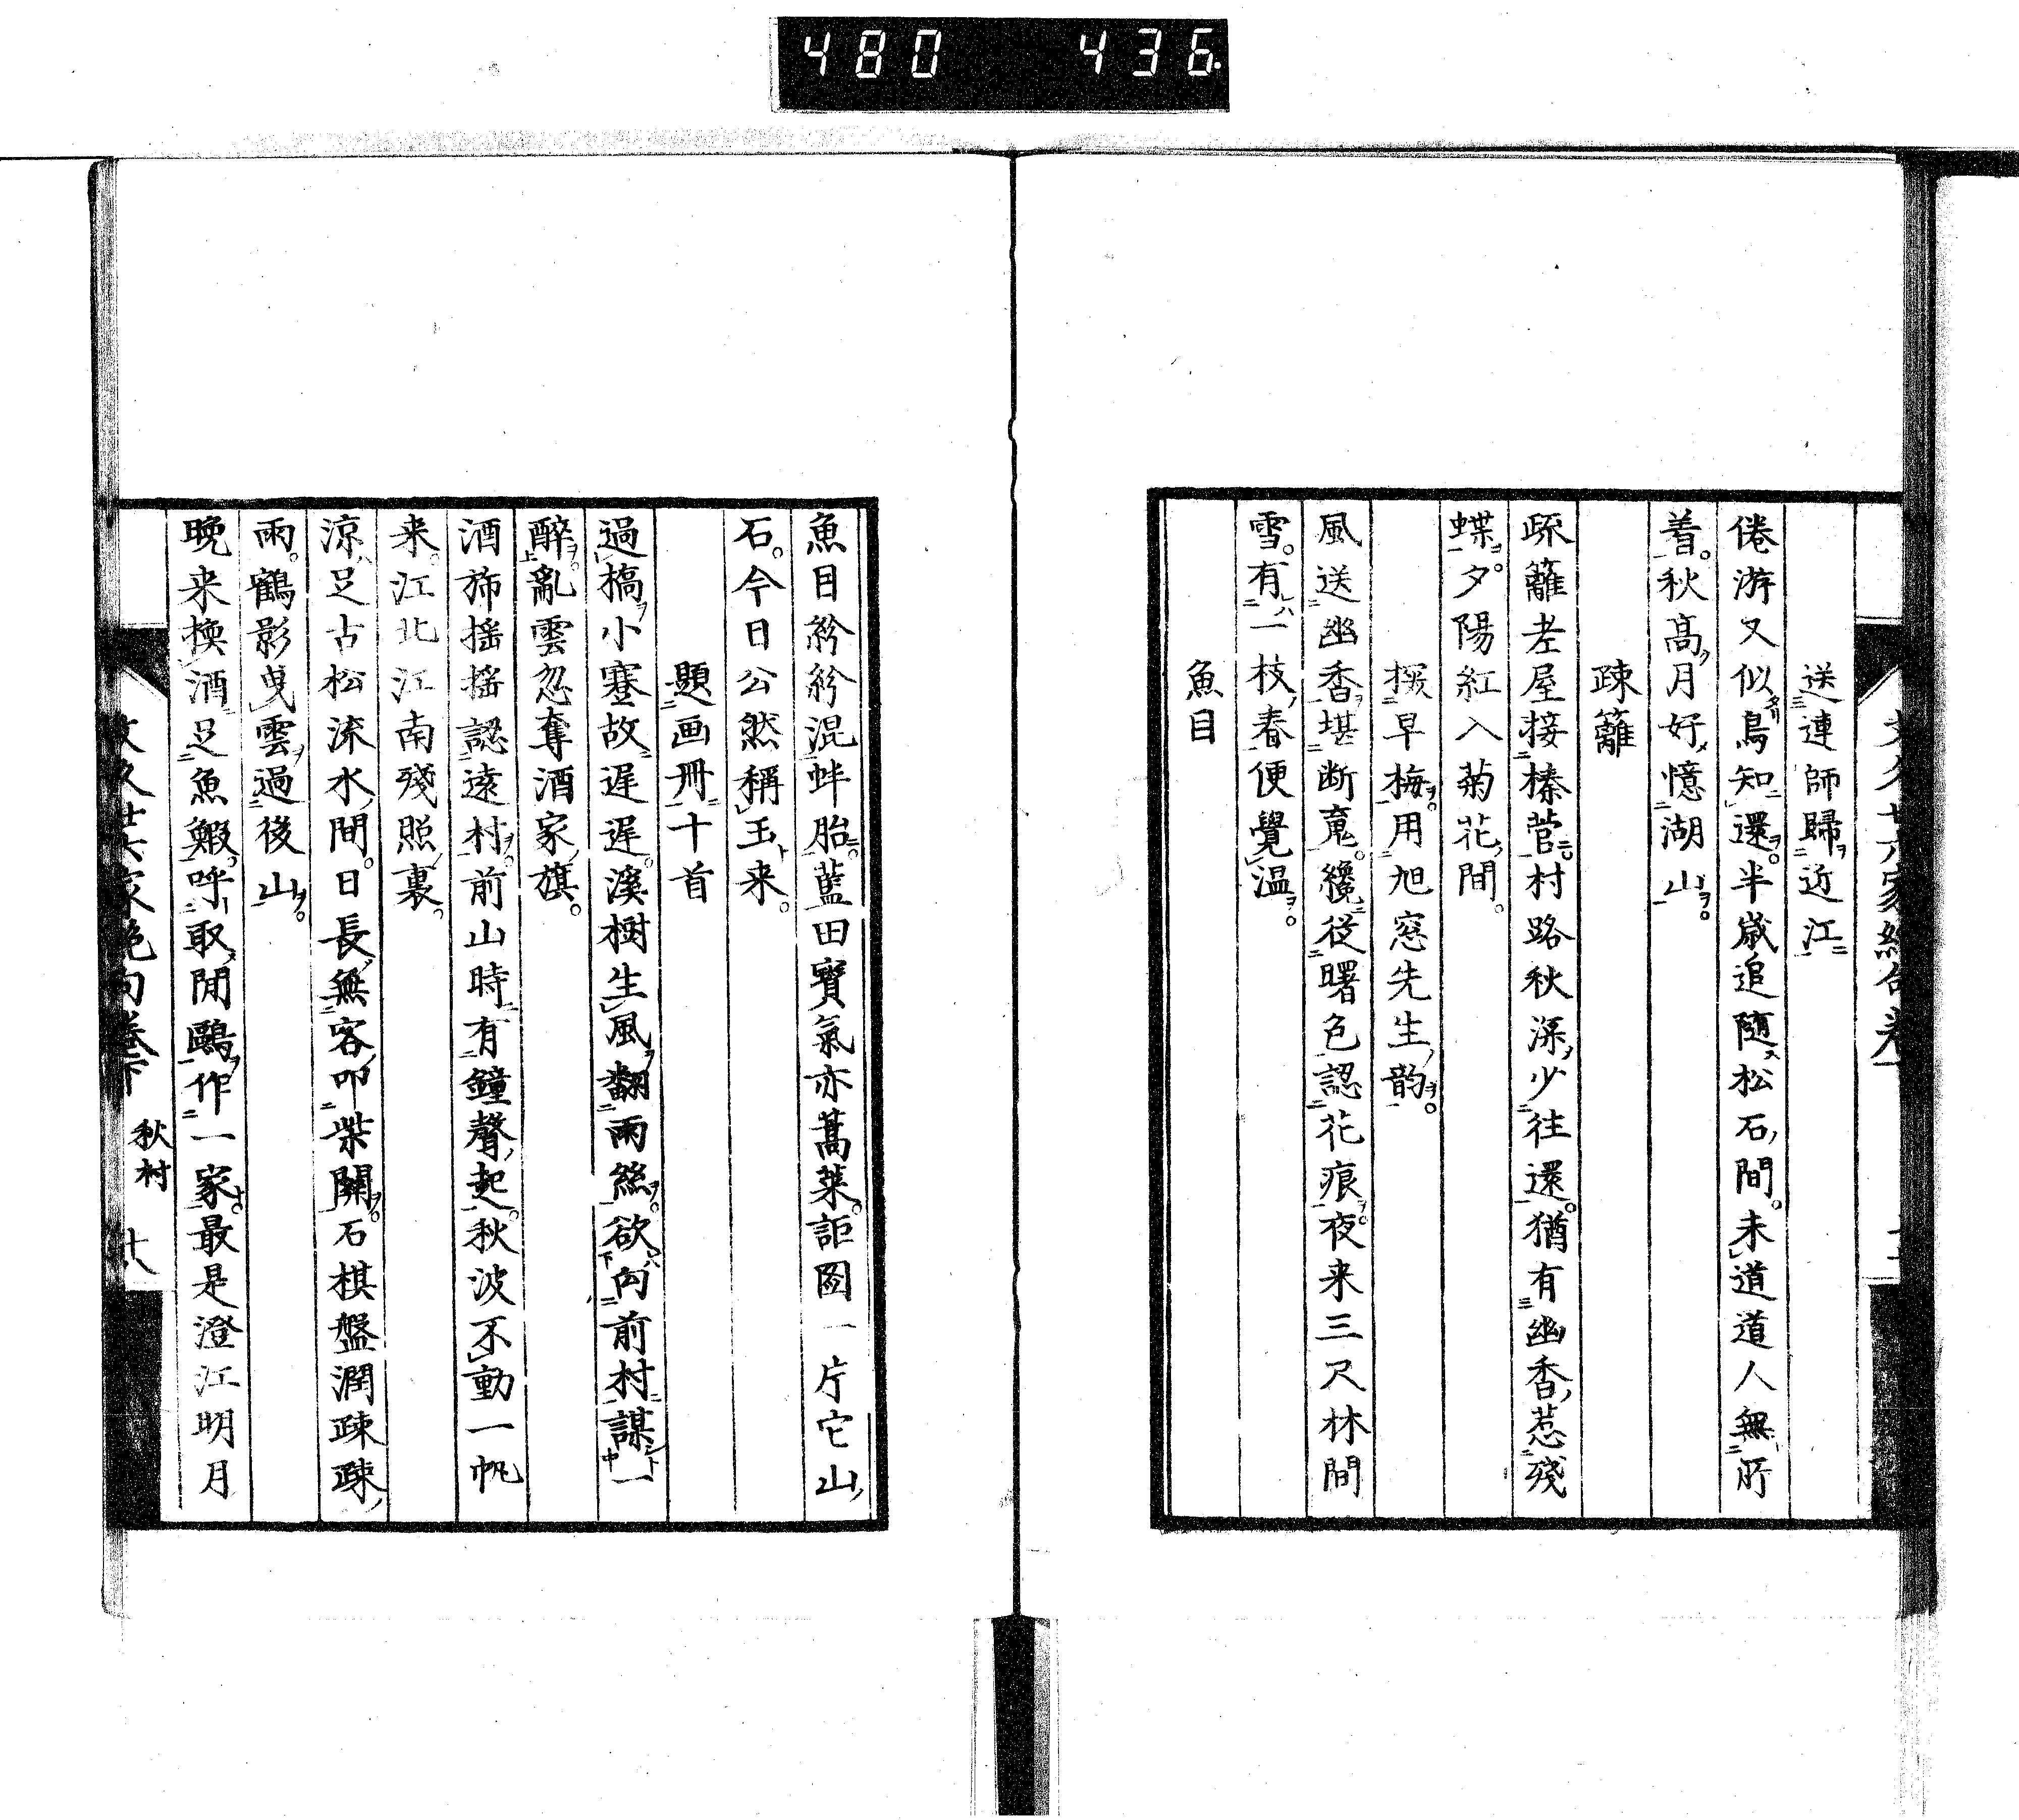 480 436
送連師歸近江
倦游又似鳥知還半歳追隨松石間未道道人無所
着秋高月好憶湖山
疎籬
疏籬老屋接榛菅村路秋深少往還猶有幽香惹殘
蝶夕陽紅入菊花間
探早梅用旭窓先生韵
風送幽香堪断䰟纔従曙色認花痕夜来三尺林間
雪有一枝春便覺温
魚目
魚目紛紛混蚌胎藍田寳氣亦蒿莱詎圖一片它山
石今日公然稱玉来
題画冊十首
過槗小蹇故遅遅溪樹生風翻雨絲欲向前村謀一
醉亂雲忽奪酒家旗
酒斾揺揺認遠村前山時有鐘聲起秋波不動一帆
来江北江南殘照裏
涼足古松流水間日長無客叩柴関石棋盤潤疎疎
雨鶴影曵雲過後山
晩来換酒足魚鰕呼取閒鷗作一家最是澄江明月
秋村
十八